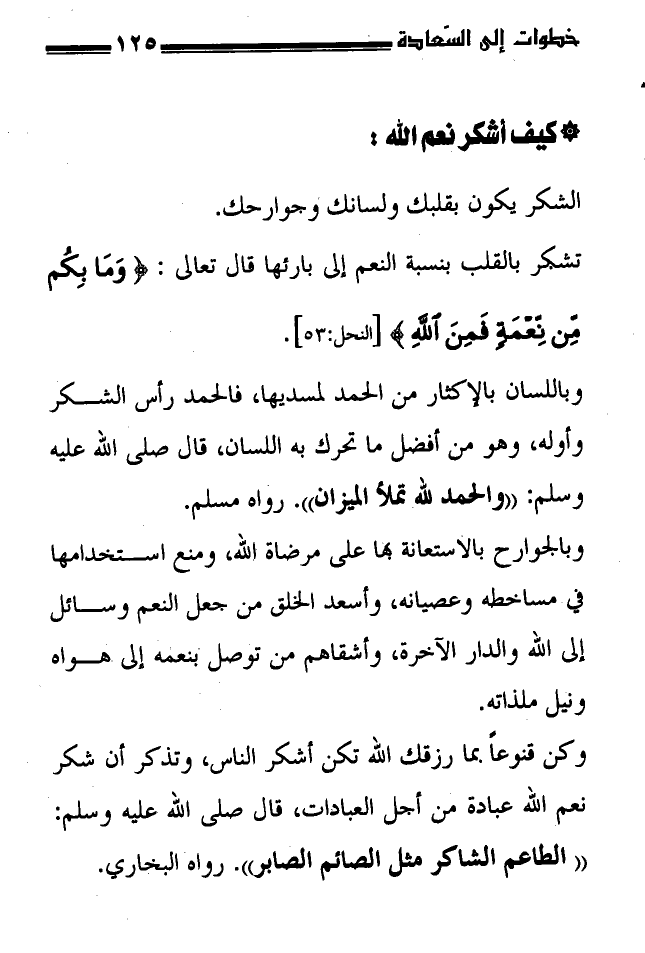 خطوات إلى السّعادة ١٢٥
۞ كيف أشكر نعم الله :
الشكر يكون بقلبك ولسانك وجوارحك.
تشكر بالقلب بنسبة النعم إلى بارئها قال تعالى : ﴿ وَمَا بِكُم
مِّن نِّعْمَةٍ فَمِنَ ٱللَّهِ ﴾ [النحل:٥٣].
وباللسان بالإكثار من الحمد لمسديها، فالحمد رأس الشـكر
وأوله، وهو من أفضل ما تحرك به اللسان، قال صلى الله عليه
وسلم: ((والحمد لله تملأ الميزان)). رواه مسلم.
وبالجوارح بالاستعانة بها على مرضاة الله، ومنع استـخدامها
في مساخطه وعصيانه، وأسعد الخلق من جعل النعم وسـائل
إلى الله والدار الآخرة، وأشقاهم من توصل بنعمه إلى هـواه
ونيل ملذاته.
وكن قنوعاً بما رزقك الله تكن أشكر الناس، وتذكر أن شكر
نعم الله عبادة من أجل العبادات، قال صلى الله عليه وسلم:
(( الطاعم الشاكر مثل الصائم الصابر)). رواه البخاري.